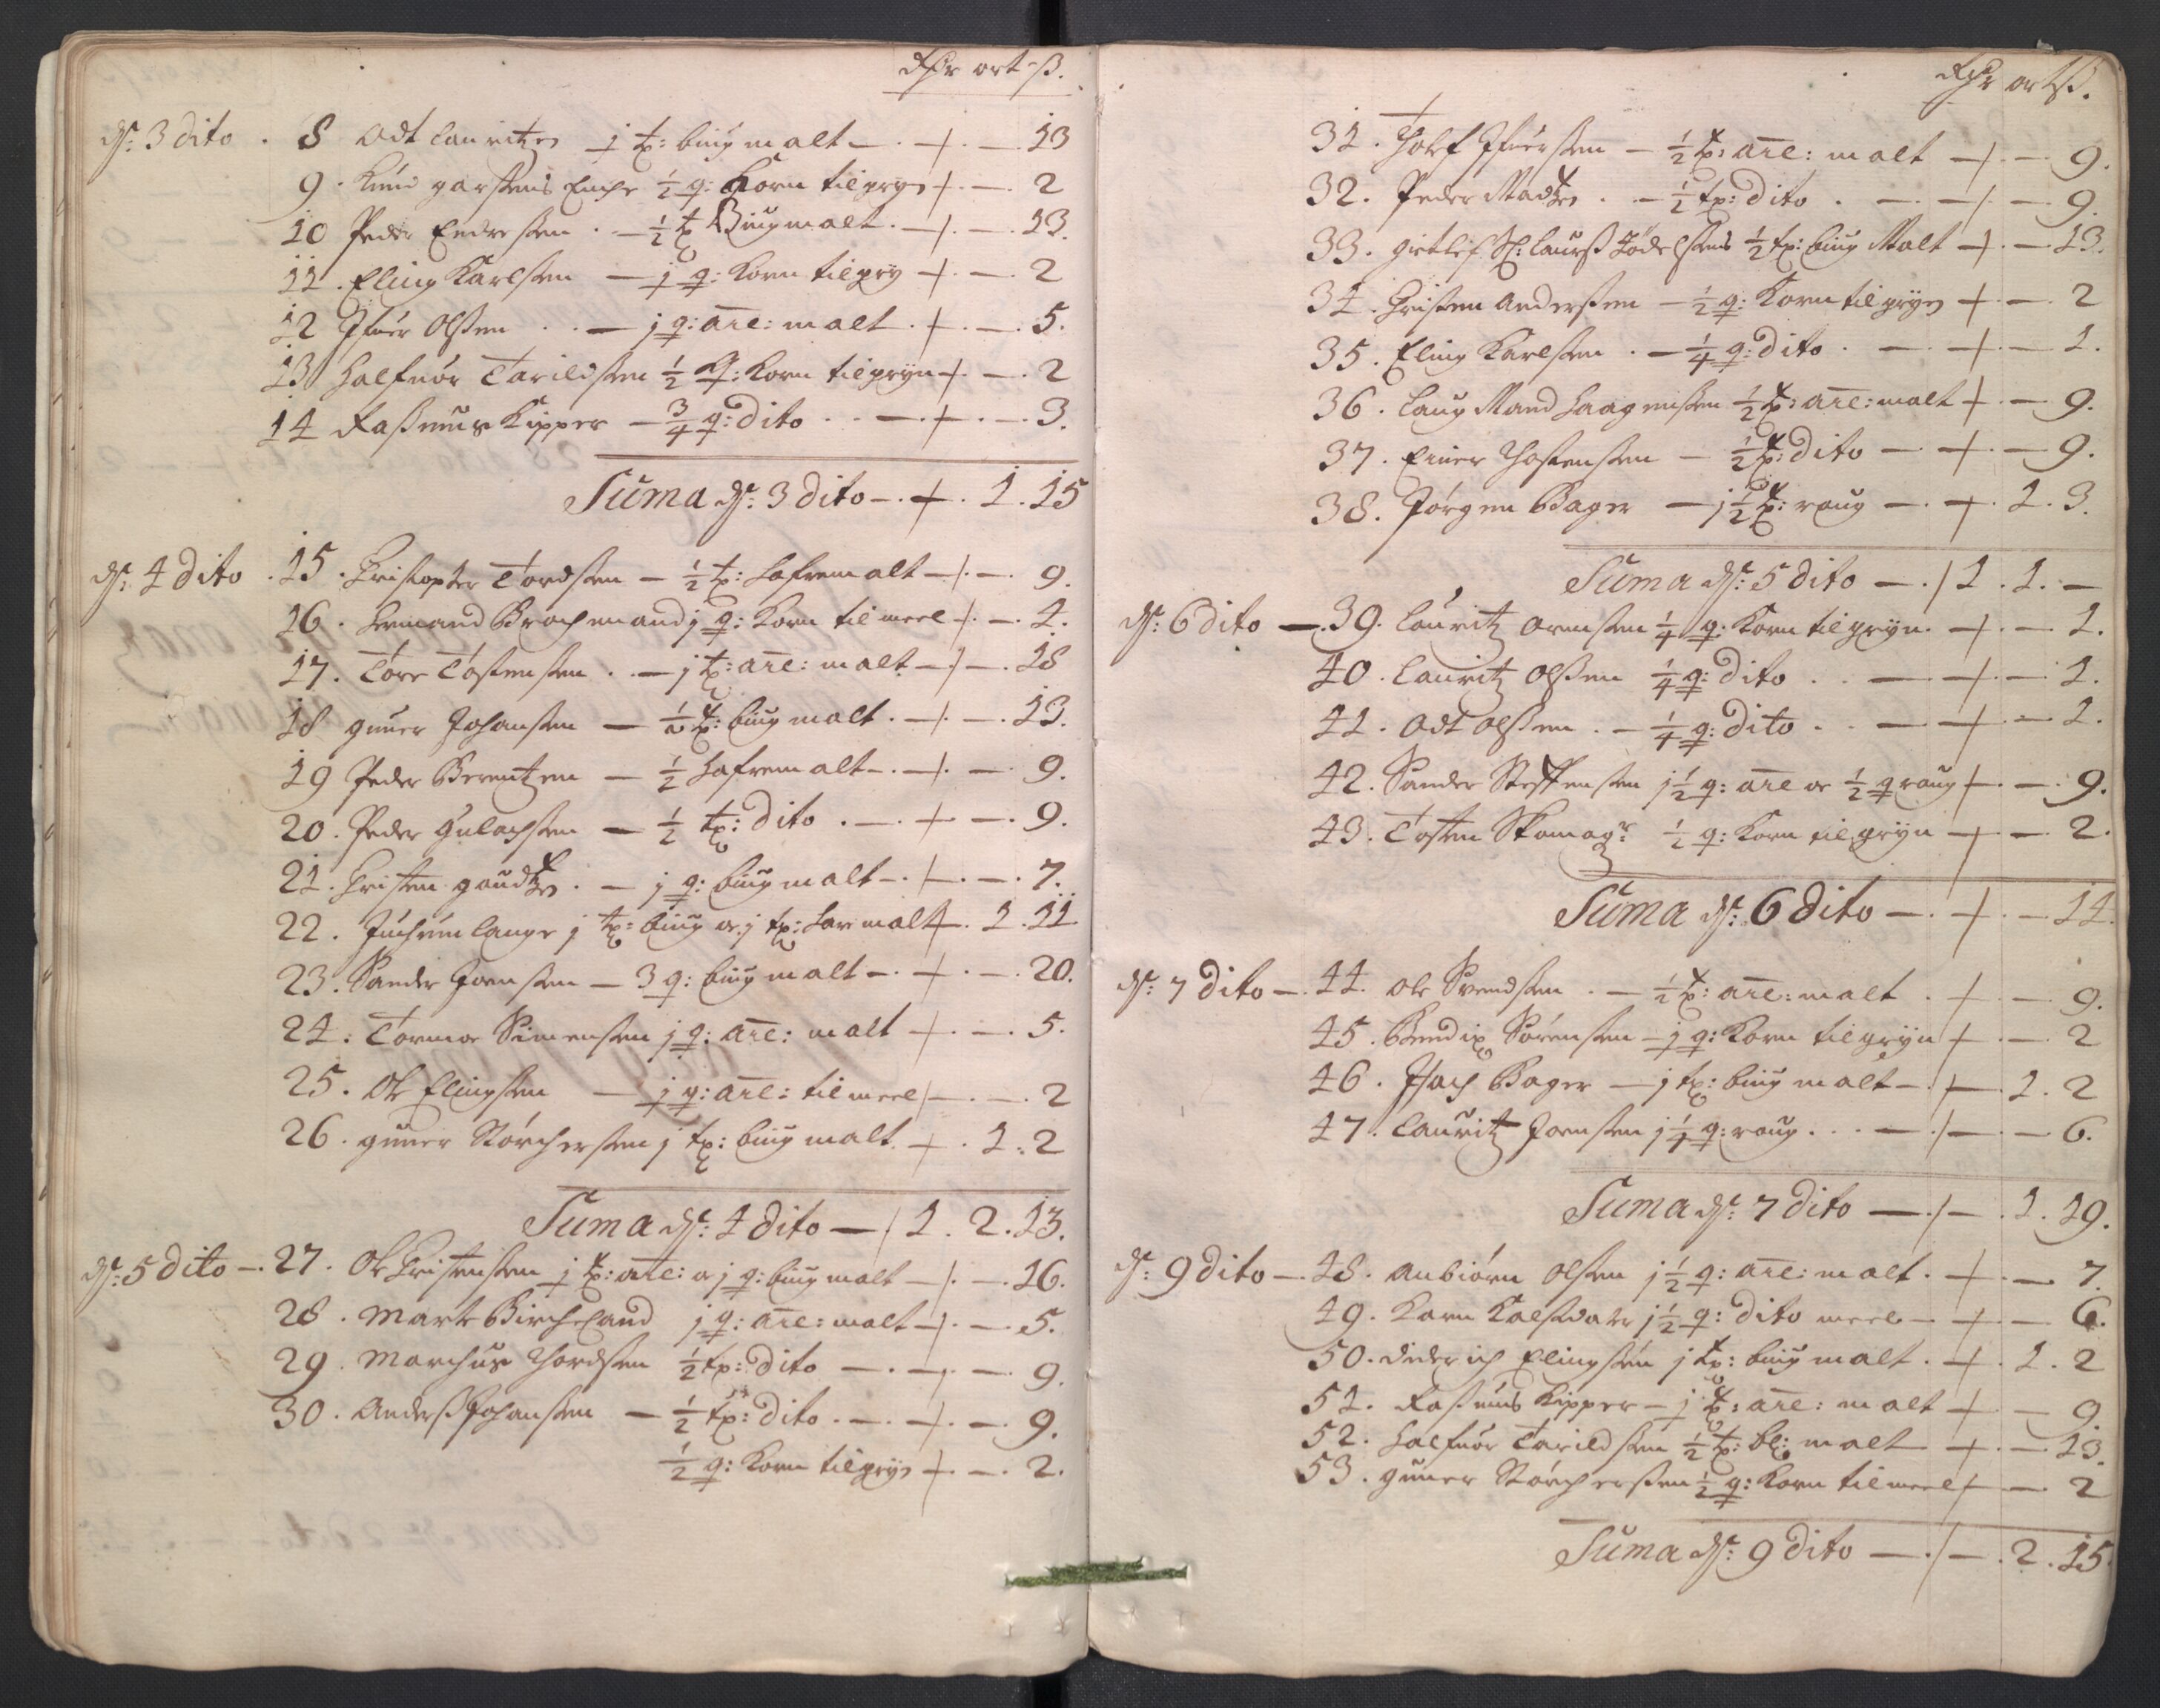 Rdr ort ß.
ds: 3 dito . 8 Odt Lauritzen j tp: biug malt — . + . — 13
9 . Knud garstens Enche ½ q: Korn til gryn + . — . 2
10 Peder Endresen . — ½ tp Biug malt . + . — . 13.
11 . Eling Karlsen — j q: Korn til gryn + . — . 2
12 Ifuer Olsen . . — j q: are: malt . + . — . 5.
13 Halfuor Tarildsen ½ q: Korn til gryn + . — . 2
14 Rasmus Kipper — ¾ q: dito . . — . + . — . 3.
Suma ds: 3 dito — . + . 1 . 15
ds: 4 dito . 15 . Christopher Tordsen — ½ tp: Hafremalt + . — . 9.
16 . Hermand Brochmand j q: Korn til meel + . — . 4.
17 . Tore Tostensen . — j tp: are: malt + . — . 18
18 guner Johansen — ½ tp: biug malt . + . — . 13.
19 Peder Berentzen — ½ Hafremalt — . + . — . 9.
20 . Peder Gulachsen — ½ tp: dito . — . + — . 9.
21 . Christen goudtzen . — j q: biug malt — . + . — . 7.
22 . Juchum Lange j tp: biug oc j tp: Har malt + . 1 . 11
23 . Sander Joensen — 3 q: biug malt — . + . — . 20.
24 . Tormoe Simensen j q: are: malt + . — . 5.
25 . Ole Elingsen — j q: are: til meel + . — . 2
26 . guner Storchersen j tp: biug malt . + . 1 . 2
Suma ds: 4 dito — / 1 . 2 . 13.
ds: 5 dito — . 27 . Ole Christensen j tp: are: oc j q: biug malt + . — . 16.
28 . Marte Bircheland j q: are: malt + . — . 5.
29 . Marchus Thordsen ½ tp: dito — . + . — . 9.
30 . Anders Johansen — ½ tp: dito . — . + . — . 9.
½ q: Korn til gryn + . — . 2.
Rdr ort ß.
31 . Tholf Ifuersen — ½ tp: are: malt + . — 9.
32 . Peder Madtzen . — ½ tp: dito . — . + — 9.
33 . Sl: Laurs ½ tp: biug Malt + . — 13.
34 . Christen Andersen — ½ q: Korn til gryn + . — . 2
35 . Eling Karlsen . — ¼ q: dito . — . + . — 1.
36 . Laug Mand Haagensen ½ tp: are: malt + . — 9.
37 . Einer Thostensen — ½ tp: dito — . + . — 9.
38 . Jörgen Bager — j ½ tp: roug — . + . 1 . 3.
Suma ds: 5 dito — . / 1 . 1 . —
ds: 6 dito — . 39 . Lauritz Orensen ¼ q: Korn til gryn . + . — 1.
40 . Lauritz Olsen ¼ q: dito . . — . + . — 1.
41 . Odt Olsen . — ¼ q: dito . . — + . — 1.
42 . Sander Steffensen j ½ q: are oc ½ q roug + . — . 9.
43 . Tosten Skomagr ½ q: Korn til gryn + . — 2.
Suma ds: 6 dito — . + . — 14.
ds: 7 dito — . 44 . Ole Svendsen . — ½ tp: are: malt . + . — 9.
45 . Bendix Sörensen — j q: Korn til gryn + . — 2
46 . Isach Bager — j tp: biug malt — . + . 1 . 2
47 . Lauritz Joensen j ¼ q: roug . . . — . + . — 6.
Suma ds: 7 dito — . / — . 1 . 19.
ds: 9 dito — . 48 . Anbiörn Olsen j ½ q: are: malt . + . — 7.
49 . Karn j ½ q: dito meel — + . — 6.
50 . Diderich Elingsen j tp: biug malt . + . 1 . 2
51 . Rasmus Kipper — j tp: are: malt + . — 9.
52 . Halfuor Tarildsen ½ tp: bl: malt + . — 13.
53 . guner Storchersen ½ q: Korn til meel + . — 2
Suma ds: 9 dito — . / — . 2 . 15.